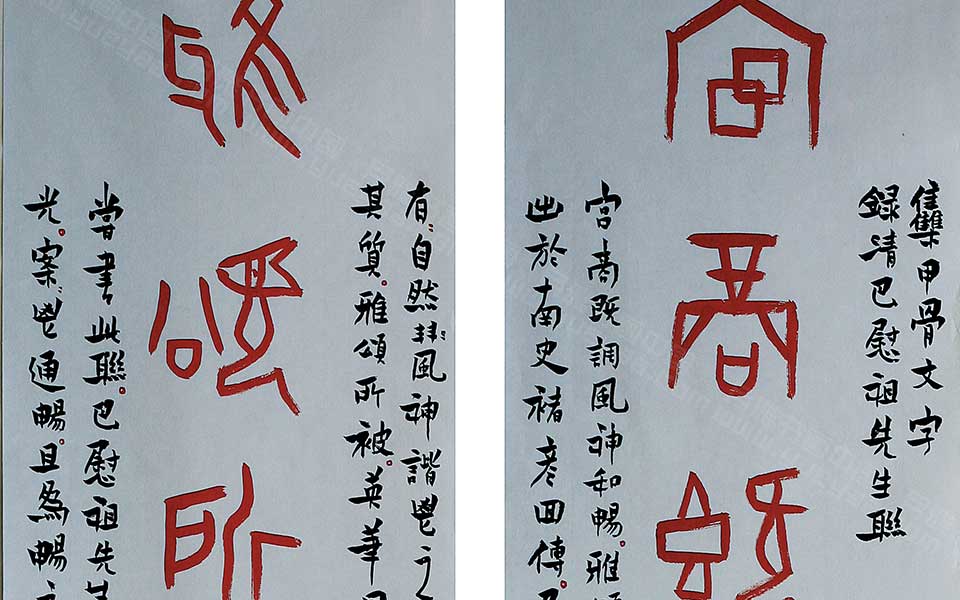 集甲骨文字
錄清巴慰祖先生聯
宮商既
宮商既調風神和暢。雅
出於南史褚彥回傳。
有。自然風神諧鬯之
其質。雅頌所被。英華日
雅頌所
嘗書此聯。巴慰祖先生
光。案鬯通暢。且為暢